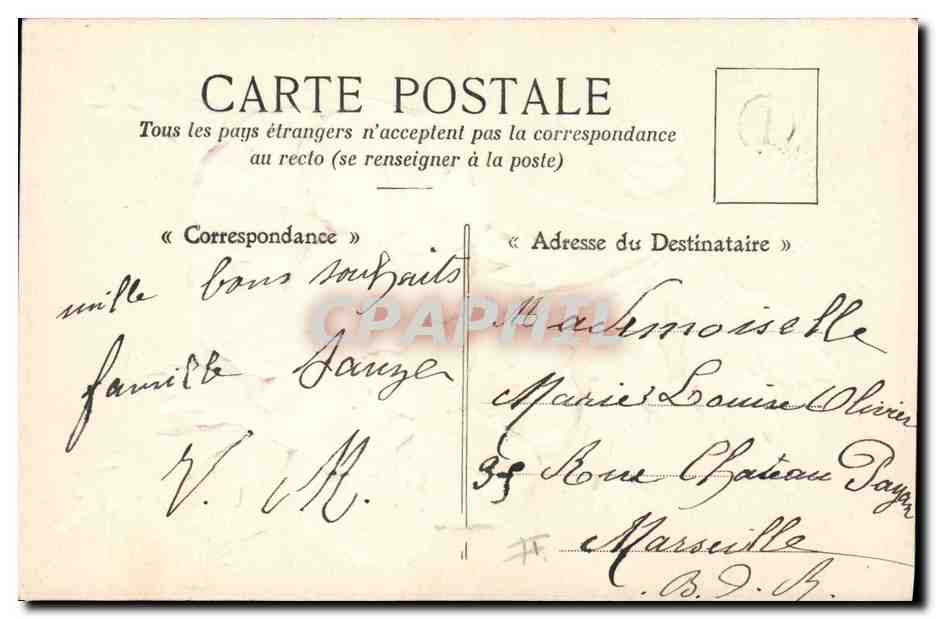 CARTE POSTALE
Tous les pays étrangers n'acceptent pas la correspondance
au recto (se renseigner à la poste)
« Correspondance »
« Adresse du Destinataire »
mille bons souhaits
famille Sauzer
V. M.
CPAPHIL
Mademoiselle
Marie Louise Olivier
35 Rue Château Payan
Marseille
B. d. R.